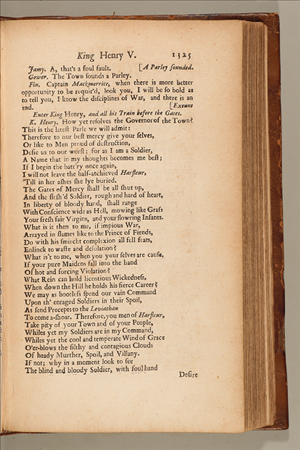 King Henry V. 1325
Jamy. A, that's a foul fault. [A Parley sounded.
Gower. The Town sounds a Parley.
Flu. Captain Mackmorrice, when there is more better
opportunity to be requir'd, look you, I will be so bold as
to tell you, I know the disciplines of War, and there is an
end. [Exeunt
Enter King Henry, and all his Train before the Gates.
K. Henry. How yet resolves the Governor of the Town?
This is the latest Parle we will admit:
Therefore to our best mercy give your selves,
Or like to Men proud of destruction,
Defie us to our worst; for as I am a Soldier,
A Name that in my thoughts becomes me best;
If I begin the batt'ry once again,
I will not leave the half-atchieved Harfleur,
'Till in her ashes she lye buried.
The Gates of Mercy shall be all shut up,
And the flesh'd Soldier, rough and hard of heart,
In liberty of bloody hand, shall range
With Conscience wide as Hell, mowing like Grass
Your fresh fair Virgins, and your flowring Infants.
What is it then to me, if impious War,
Arrayed in flames like to the Prince of Fiends,
Do with his smircht complexion all fell feats,
Enlinck to waste and desolation?
What is't to me, when you your selves are cause,
If your pure Maidens fall into the hand
Of hot and forcing Violation?
What Rein can hold licentious Wickedness,
When down the Hill he holds his fierce Career?
We may as bootless spend our vain Command
Upon th' enraged Soldiers in their Spoil,
As send Precepts to the Leviathan
To come a-shoar. Therefore, you men of Harfleur,
Take pity of your Town and of your People,
Whiles yet my Soldiers are in my Command,
Whiles yet the cool and temperate Wind of Grace
O'er-blows the filthy and contagious Clouds
Of heady Murther, Spoil, and Villany.
If not; why in a moment look to see
The blind and bloody Soldier, with foul hand
Desire